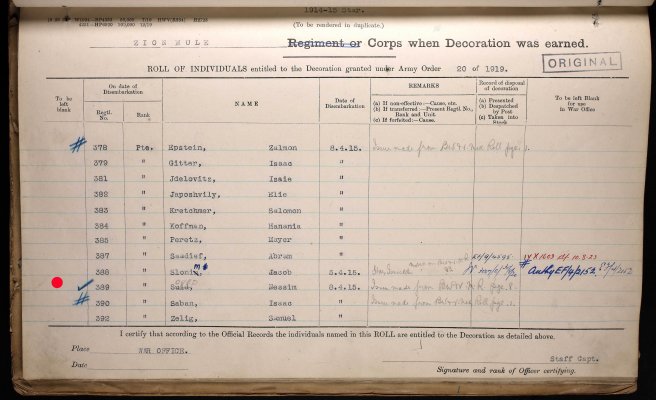 1914-15 Star.
(To be rendered in duplicate.)
ZION MULE Regiment or Corps when Decoration was earned.
ORIGINAL
ROLL OF INDIVIDUALS entitled to the Decoration granted under Army Order 20 of 1919.
To be left blank
On date of Disembarkation
Regtl. No.
Rank
NAME
Date of Disembarkation
REMARKS
(a) If non-effective:—Cause, etc.
(b) If transferred:—Present Regtl. No., Rank and Unit.
(c) If forfeited:—Cause.
Record of disposal of decoration
(a) Presented
(b) Despatched by Post
(c) Taken into Stock
To be left Blank for use in War Office
378 Pte. Epstein, Zalmon 8.4.15. Issue made from B.W. & V. Med Roll page 1.
379 " Gitter, Isaac "
381 " Jdelovitz, Isaie "
382 " Japoshvily, Elie "
383 " Kretchmer, Salomon "
384 " Koffman, Hanania "
385 " Peretz, Meyer "
387 " Saadief, Abram "
388 " Slonim, Jacob 5.4.15.
389 " Said, Nessim 8.4.15. Issue made from page 8
390 " Saban, Isaac " Issue made from Roll page 1.
392 " Zelig, Samuel "
I certify that according to the Official Records the individuals named in this ROLL are entitled to the Decoration as detailed above.
Place WAR OFFICE.
Staff Capt.
Date
Signature and rank of Officer certifying.